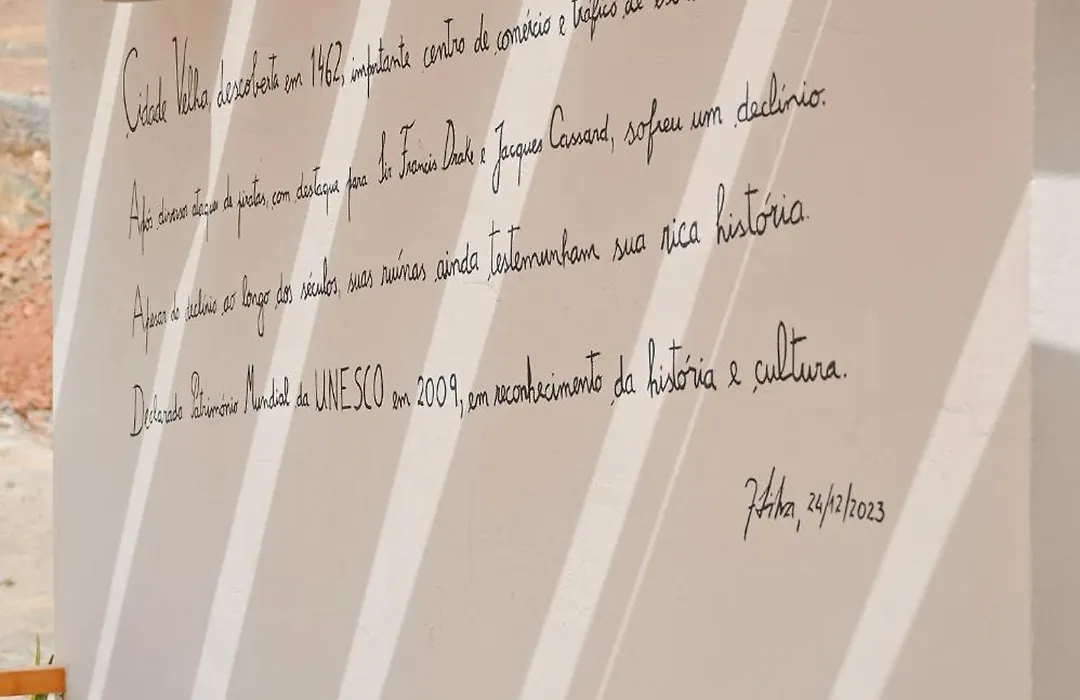 Cidade Velha, descoberta em 1462, importante centro de comércio e tráfico de
Após diversos ataques de piratas, com destaque para Sir Francis Drake e Jacques Cassard, sofreu um declínio.
Apesar do declínio ao longo dos séculos, suas ruínas ainda testemunham sua rica história.
Declarada Património Mundial da UNESCO em 2009, em reconhecimento da história e cultura.
24/12/2023